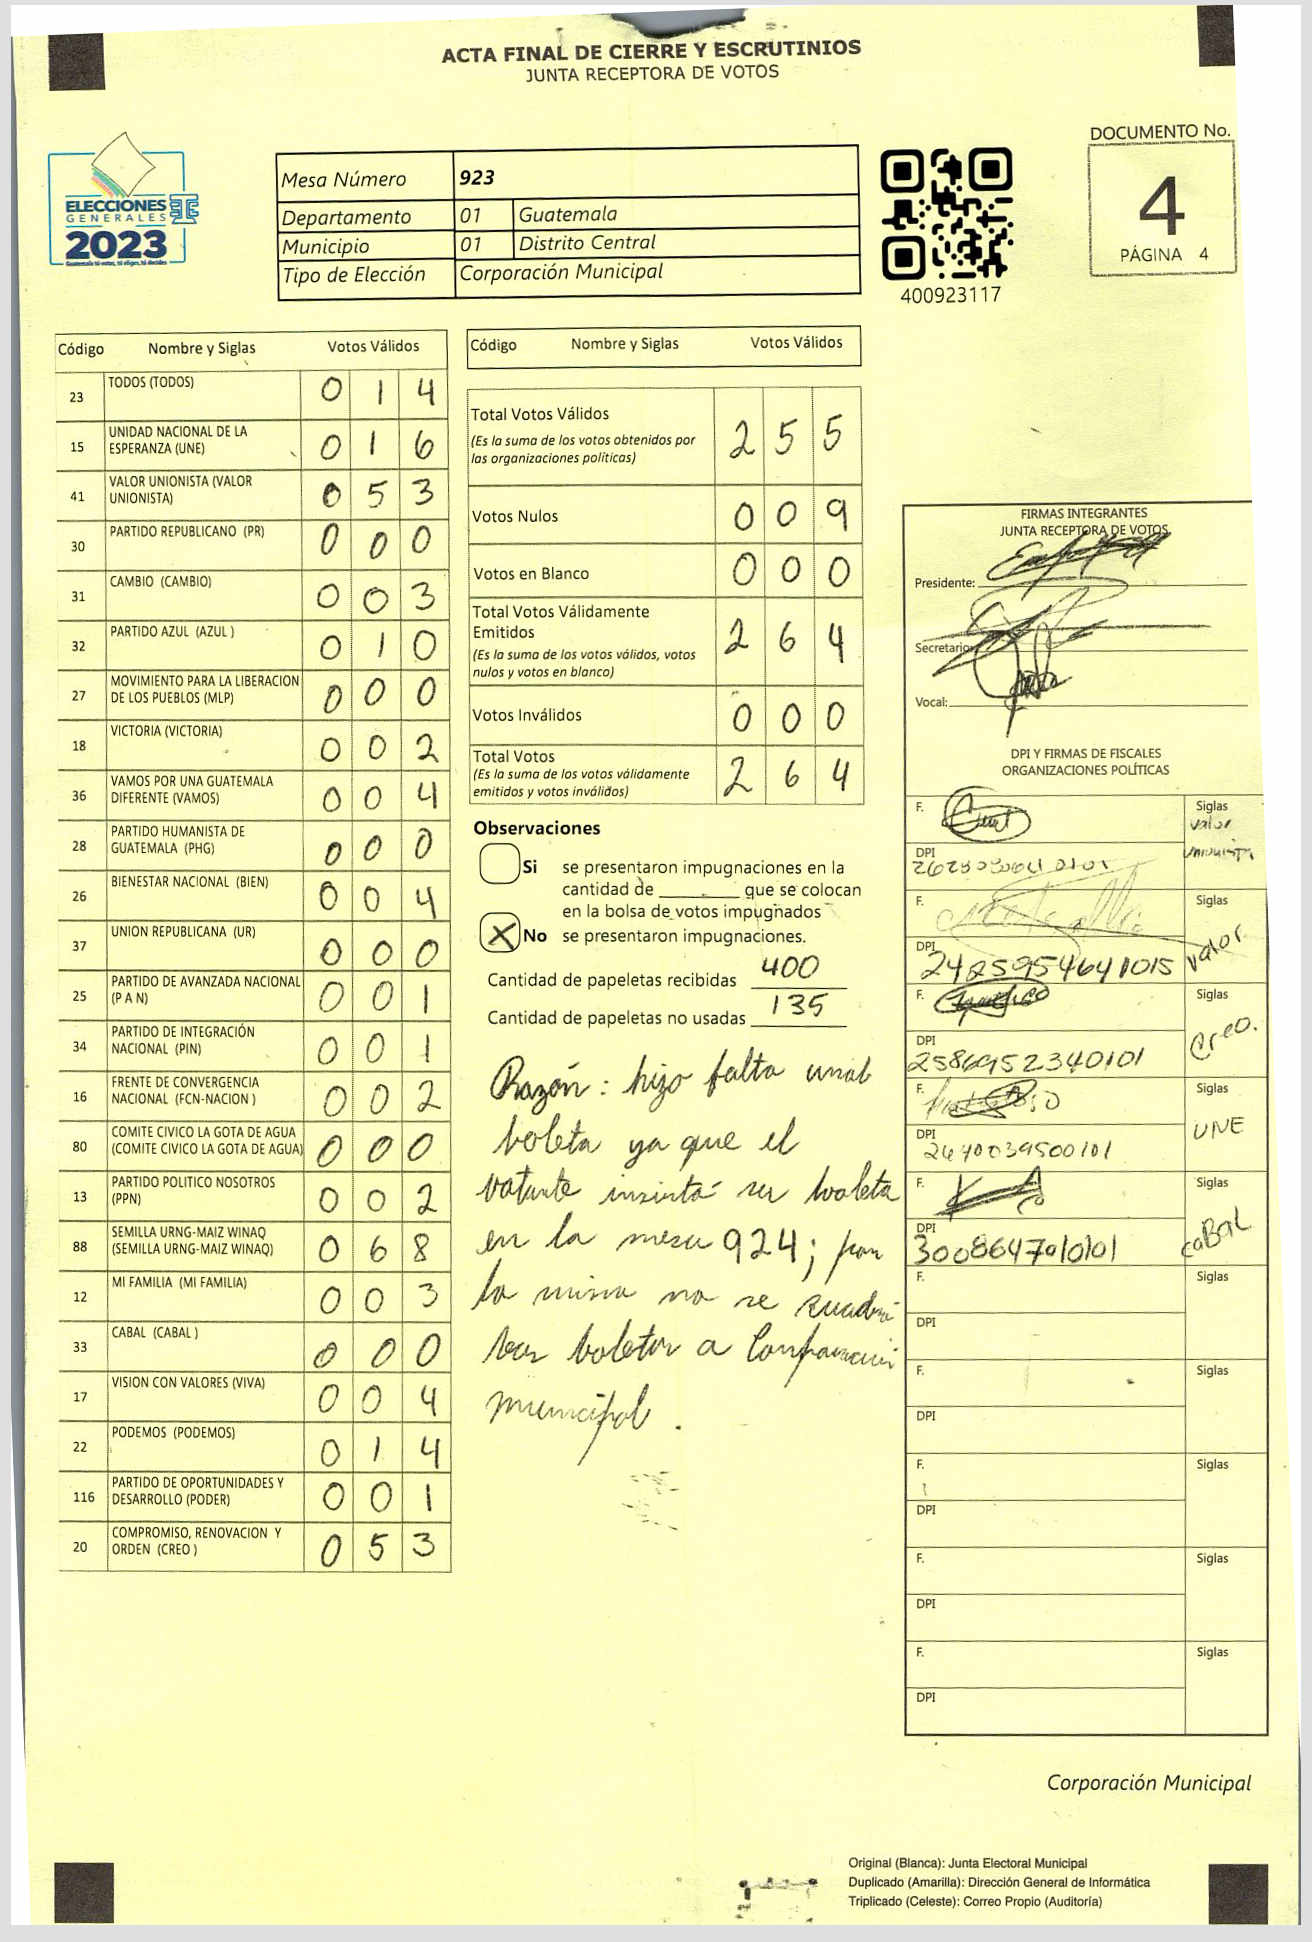 ACTA FINAL DE CIERRE Y ESCRUTINIOS
JUNTA RECEPTORA DE VOTOS
DOCUMENTO No.
4
PÁGINA 4
ELECCIONES
GENERALES
2023
Mesa Número 923
Departamento 01 Guatemala
Municipio 01 Distrito Central
Tipo de Elección Corporación Municipal
400923117
Código Nombre y Siglas Votos Válidos
23 TODOS (TODOS) 0 1 4
15 UNIDAD NACIONAL DE LA
ESPERANZA (UNE) 0 1 6
41 VALOR UNIONISTA (VALOR
UNIONISTA) 0 5 3
30 PARTIDO REPUBLICANO (PR) 0 0 0
31 CAMBIO (CAMBIO) 0 0 3
32 PARTIDO AZUL (AZUL ) 0 1 0
27 MOVIMIENTO PARA LA LIBERACION
DE LOS PUEBLOS (MLP) 0 0 0
18 VICTORIA (VICTORIA) 0 0 2
36 VAMOS POR UNA GUATEMALA
DIFERENTE (VAMOS) 0 0 4
28 PARTIDO HUMANISTA DE
GUATEMALA (PHG) 0 0 0
26 BIENESTAR NACIONAL (BIEN) 0 0 4
37 UNION REPUBLICANA (UR) 0 0 0
25 PARTIDO DE AVANZADA NACIONAL
(P A N) 0 0 1
34 PARTIDO DE INTEGRACIÓN
NACIONAL (PIN) 0 0 1
16 FRENTE DE CONVERGENCIA
NACIONAL (FCN-NACION ) 0 0 2
80 COMITE CIVICO LA GOTA DE AGUA
(COMITE CIVICO LA GOTA DE AGUA) 0 0 0
13 PARTIDO POLITICO NOSOTROS
(PPN) 0 0 2
88 SEMILLA URNG-MAIZ WINAQ
(SEMILLA URNG-MAIZ WINAQ) 0 6 8
12 MI FAMILIA (MI FAMILIA) 0 0 3
33 CABAL (CABAL ) 0 0 0
17 VISION CON VALORES (VIVA) 0 0 4
22 PODEMOS (PODEMOS) 0 1 4
116 PARTIDO DE OPORTUNIDADES Y
DESARROLLO (PODER) 0 0 1
20 COMPROMISO, RENOVACION Y
ORDEN (CREO ) 0 5 3
Código Nombre y Siglas Votos Válidos
Total Votos Válidos 2 5 5
(Es la suma de los votos obtenidos por
las organizaciones políticas)
Votos Nulos 0 0 9
Votos en Blanco 0 0 0
Total Votos Válidamente
Emitidos 2 6 4
(Es la suma de los votos válidos, votos
nulos y votos en blanco)
Votos Inválidos 0 0 0
Total Votos 2 6 4
(Es la suma de los votos válidamente
emitidos y votos inválidos)
Observaciones
Si se presentaron impugnaciones en la
cantidad de ______ que se colocan
en la bolsa de votos impugnados
X No se presentaron impugnaciones.
Cantidad de papeletas recibidas 400
Cantidad de papeletas no usadas 135
Razón: hizo falta una
boleta ya que el
votante insertó su boleta
en la mesa 924; por
lo mismo no se cuadró
las boletas a Corporación
municipal.
FIRMAS INTEGRANTES
JUNTA RECEPTORA DE VOTOS
Presidente:
Secretario:
Vocal:
DPI Y FIRMAS DE FISCALES
ORGANIZACIONES POLÍTICAS
F. Siglas
Valor
unionista
DPI
F. Siglas
Valor
DPI
F. Siglas
Creo.
DPI
2586952340101
F. Siglas
UNE
DPI
2640039500101
F. Siglas
CABAL
DPI
3008647010101
F. Siglas
DPI
F. Siglas
DPI
F. Siglas
DPI
F. Siglas
DPI
F. Siglas
DPI
Corporación Municipal
Original (Blanca): Junta Electoral Municipal
Duplicado (Amarilla): Dirección General de Informática
Triplicado (Celeste): Correo Propio (Auditoría)